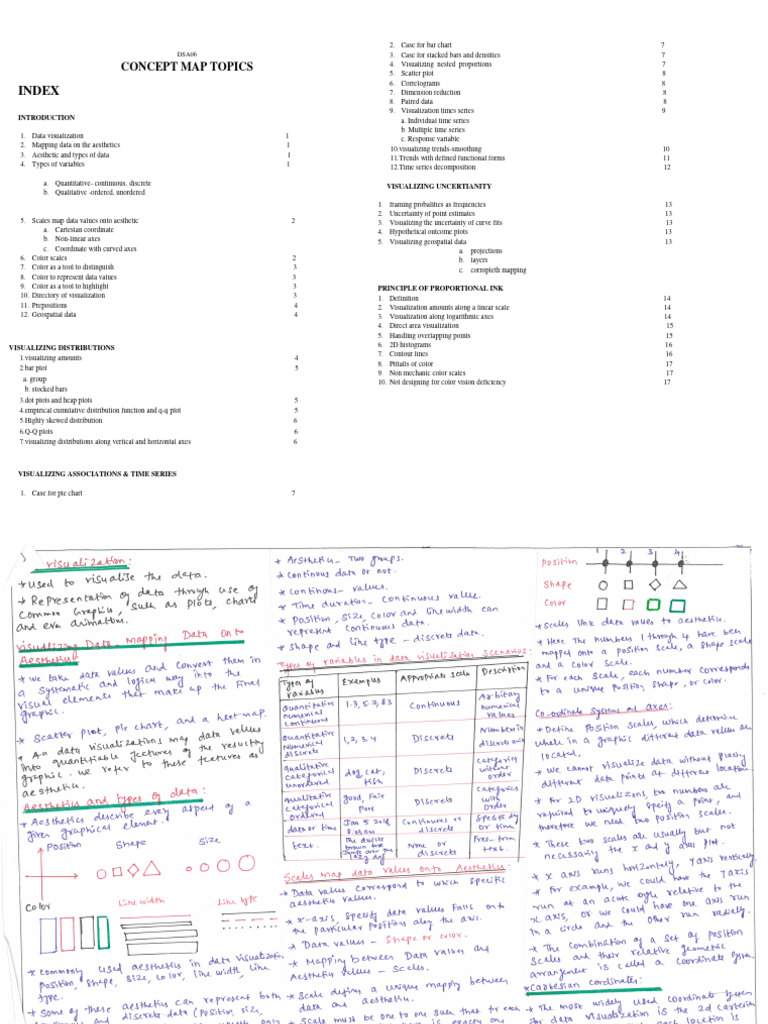 DSA06
CONCEPT MAP TOPICS
INDEX
INTRODUCTION
1. Data visualization 1
2. Mapping data on the aesthetics 1
3. Aesthetic and types of data 1
4. Types of variables 1
a. Quantitative- continuous, discrete
b. Qualitative -ordered, unordered
5. Scales map data values onto aesthetic 2
a. Cartesian coordinate
b. Non-linear axes
c. Coordinate with curved axes
6. Color scales 2
7. Color as a tool to distinguish 3
8. Color to represent data values 3
9. Color as a tool to highlight 3
10. Directory of visualization 3
11. Prepositions 4
12. Geospatial data 4
VISUALIZING DISTRIBUTIONS
1.visualizing amounts 4
2.bar plot 5
a. group
b. stocked bars
3.dot plots and heap plots 5
4.empirical cumulative distribution function and q-q plot 5
5.Highly skewed distribution 6
6.Q-Q plots 6
7.visualizing distributions along vertical and horizontal axes 6
VISUALIZING ASSOCIATIONS & TIME SERIES
1. Case for pie chart 7
2. Case for bar chart 7
3. Case for stacked bars and densities 7
4. Visualizing nested proportions 7
5. Scatter plot 8
6. Correlograms 8
7. Dimension reduction 8
8. Paired data 8
9. Visualization times series 9
a. Individual time series
b. Multiple time series
c. Response variable
10.visualizing trends-smoothing 10
11.Trends with defined functional forms 11
12.Time series decomposition 12
VISUALIZING UNCERTIANITY
1. framing probalities as frequencies 13
2. Uncertainty of point estimates 13
3. Visualizing the uncertainty of curve fits 13
4. Hypothetical outcome plots 13
5. Visualizing geospatial data 13
a. projections
b. layers
c. corropleth mapping
PRINCIPLE OF PROPORTIONAL INK
1. Definition 14
2. Visualization amounts along a linear scale 14
3. Visualization along logarithmic axes 14
4. Direct area visualization 15
5. Handling overlapping points 15
6. 2D histograms 16
7. Contour lines 16
8. Pittalis of color 17
9. Non mechanic color scales 17
10. Not designing for color vision deficiency 17
visualization:
* used to visualise the data.
* Representation of data through use of
common Graphics, such as plots, charts
and even animation.
visualizing Data - mapping Data onto
Aesthetics
* we take data values and convert them in
a systematic and logical way into the
visual elements that make up the final
graphic.
* Scatter plot, pie chart, and a heat map.
* An data visualizations map data values
into quantifiable features of the resulting
graphic. we refer to these features as
aesthetic.
Aesthetics and types of data:
* Aesthetics describe every aspect of a
given graphical element.
Position Shape Size
Color Line width Line type
* commonly used aesthetics in data visualization
position, shape, size, color, line width, line
type.
* Some of these aesthetics can represent both
discrete data (position, size,
* Aesthetics - Two groups.
* Continous data or not.
* Continous - values.
* Time duration - continuous value.
* Position, Size, color and line width can
represent continuous data.
* shape and line type - discrete data.
Types of variables in data visualization scenarios:
Types of variables Examples Appropriate scale Description
Quantitative numerical continuous 1.3, 5.7, 83 Continuous Arbitary numerical values
Quantitative Numerical discrets 1, 2, 3, 4 Discrets Numbers in discrete unit
qualitative categorical unordered dog, cat, fish Discrets categories without order
qualitative categorical ordered good, Fair Poor Discrets categories with order
date or time Continuous or discrets Specific day or time
text. None or discrets Free-form text.
Scales map data values onto Aesthetics:
* Data values correspond to which specific
aesthetic values.
* x-axis, specify data values falls onto
the particular positions along the axis.
* Data values - Shape or color.
* Mapping between Data values and
Aesthetic values - Scales.
* Scale define a unique mapping between
data and aesthetic.
* Scale must be one to one such that for each
Position 1 2 3 4
Shape
Color
* Scales link data values to aesthetic.
* Here the numbers 1 through 4 have been
mapped onto a position scale, a shape scale
and a color scale.
* For each scale, each number corresponds
to a unique position, shape, or color.
Co-ordinate Systems and Axes:
* Define Position scales, which determine
where in a graphic different data values are
located.
* We cannot visualize data without placing
different data points at different location
* For 2D visualizons, two numbers are
required to uniquely specify a point, and
therefore we need two position scales.
* These two scales are usually but not
necessarily the x and y axis plot.
* x axis runs horizontally, y axis vertically.
* For example, we could have the y axis
run at an acute angle relative to the
x axis, or we could have one axis run
in a circle and the other run radially.
* The combination of a set of position
scales and their relative geometric
arrangement is called a coordinate system.
* Cartesian coordinates:
* The most widely used coordinate system
for data visualization is the 2d cartesian